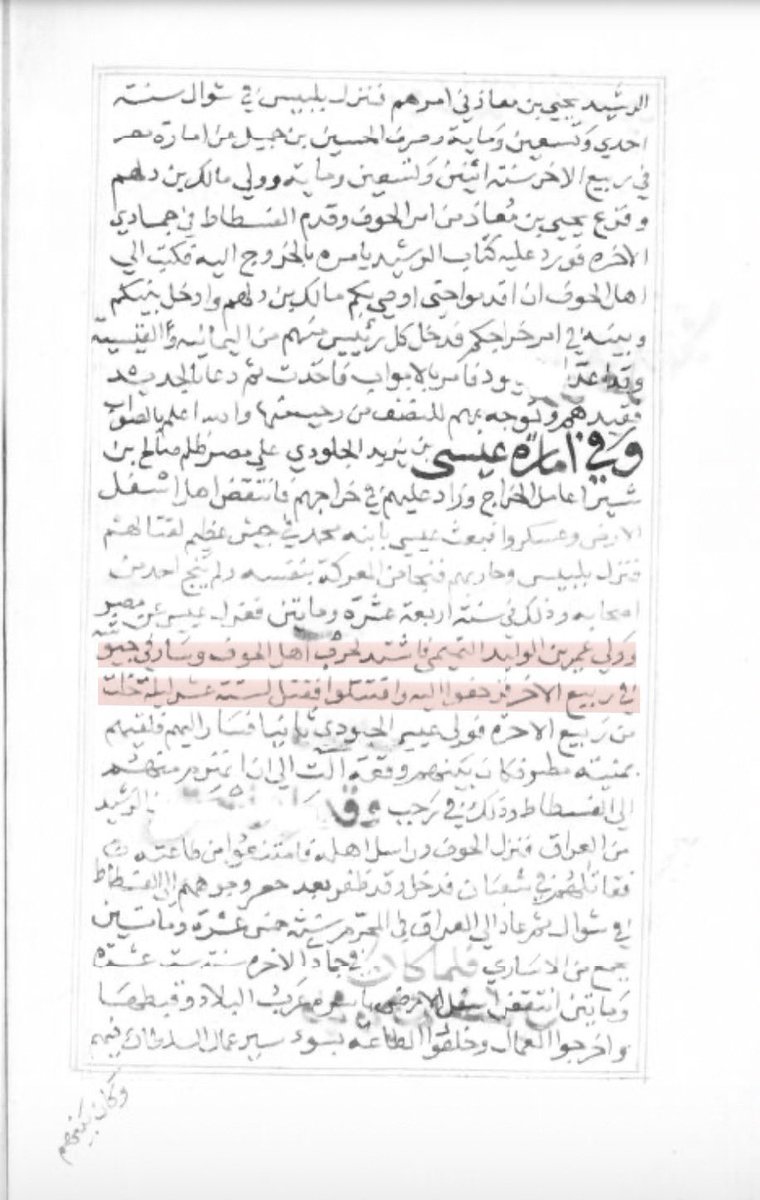 الرشيد يحيى بن معاذ في امرهم فنزل بلبيس في شوال سنة
احدي وتسعين وماية وصرف الحسين بن جميل من امارة مصر
في ربيع الاخر سنة اثنين وتسعين وماية وولي مالك بن دلهم
و فرغ يحيي بن معاذ من امر الحوف وقدم الفسطاط في جمادي
الاخره فورد عليه كتاب الرشيد يامره بالخروج اليه فكتب الي
اهل الحوف ان اقدموا حتي اوصي بكم مالك بن دلهم وادخل بينكم
وبينه في امر خراجكم فدخل كل رئيس منهم من اليمانيه والقيسية
وقد اعد فامر بالابواب فاخذت ثم دعا بالحديد
فقيدهم وتوجه بهم للنصف من رجب منها والله اعلم بالصواب
وفي امارة عيسى بن يزيد الجلودي علي مصر ظلم صالح بن
شيرا عامل الخراج وزاد عليهم في خراجهم فانتقض اهل اسفل
الارض وعسكروا فبعث عيسي بابنه محمد في جيش عظيم لقتالهم
فنزل بلبيس وحاربهم فنجا من المعركة بنفسه ولم ينج احد من
اصحابه وذلك في سنة اربعة عشرة وماتين فعزل عيسي عن مصر
وولي عمير بن الوليد التميمي فاستعد لحرب اهل الحوف وسار في جيوشه
في ربيع الاخر فزحفوا اليه واقتتلوا فقتل لستة عشر ليلة خلت
من ربيع الاخره فولي عيسي الجلودي ثانيا فسار اليهم فلقيهم
بمنية مطر فكان بينهم وقعة الت الي ان انهزم منهم
الي الفسطاط وذلك في رجب الرشيد
من العراق فنزل الحوف وراسل اهله فامتنعوا من طاعته
فقاتلهم في شعبان فدخل وقد ظفر بعد الي الفسطاط
في شوال ثم عاد الي العراق في المحرم سنة خمس عشرة وماتين
بجمع من الاساري فلما كان في جماد الاخره سنة ست عشرة
وماتين انتقض اسفل الارض باسره عرب البلاد وقبطها
واخرجوا العمال وخلعوا الطاعة بسوء سير عمال السلطان فيهم
وكان بينهم